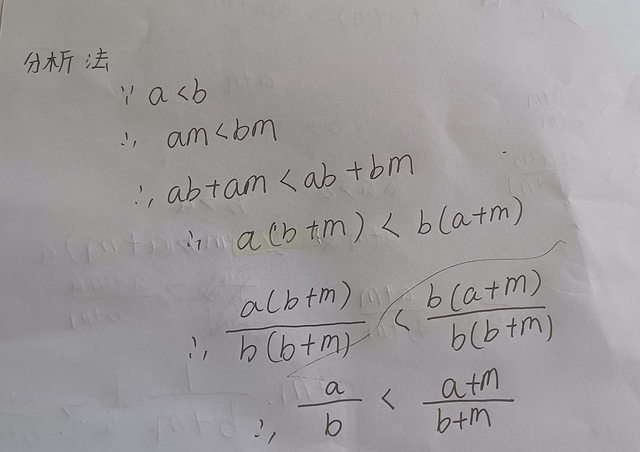 分析法
∵ a<b
∴ am<bm
∴ ab+am<ab+bm
∴ a(b+m)<b(a+m)
∴ a(b+m)/b(b+m) < b(a+m)/b(b+m)
∴ a/b < a+m/b+m